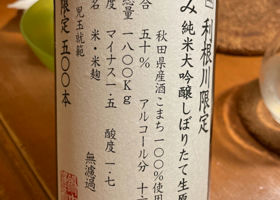 利根川限定
み 純米大吟醸しぼりたて生原
秋田県産酒こまち一〇〇%使用
合 五十% アルコール分 十六
総量 一八〇〇Kg
度 マイナス一・五 酸度 一・七
名 米・米麹
無濾過
限定 五〇〇本
児玉